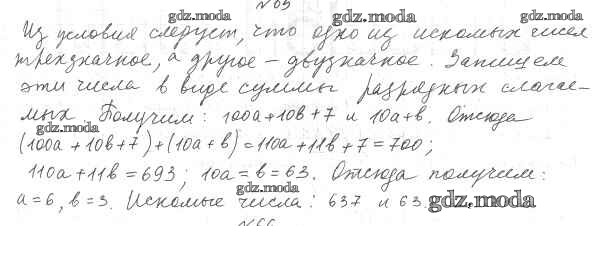 № 65
gdz.moda gdz.moda gdz.moda
Из условия следует, что одно из искомых чисел
трехзначное, а другое – двузначное. Запишем
эти числа в виде суммы разрядных слагае-
мых. Получим: 100a+10b+7 и 10a+b. Отсюда
gdz.moda
(100a+10b+7)+(10a+b)=110a+11b+7=700;
110a+11b=693; 10a=b=63. Отсюда получим:
gdz.moda
a=6, b=3. Искомые числа: 637 и 63. gdz.moda
№ 66